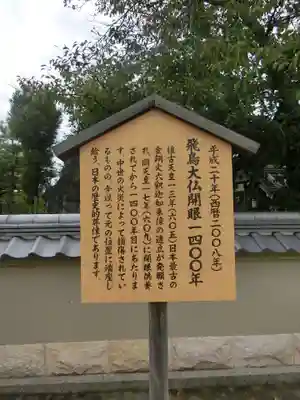 平成二十年(西暦二〇〇八年)
飛鳥大仏開眼一四〇〇年
推古天皇一三年(六〇五)日本最古の
金銅丈六釈迦如来像の造立が発願さ
れ、同天皇一七年(六〇九)に開眼供養
されてから一四〇〇年目にあたりま
す。中世の火災によって損傷されてい
るものの、今以って元の位置に鎮座し
給う、日本の歴史的原像であります。